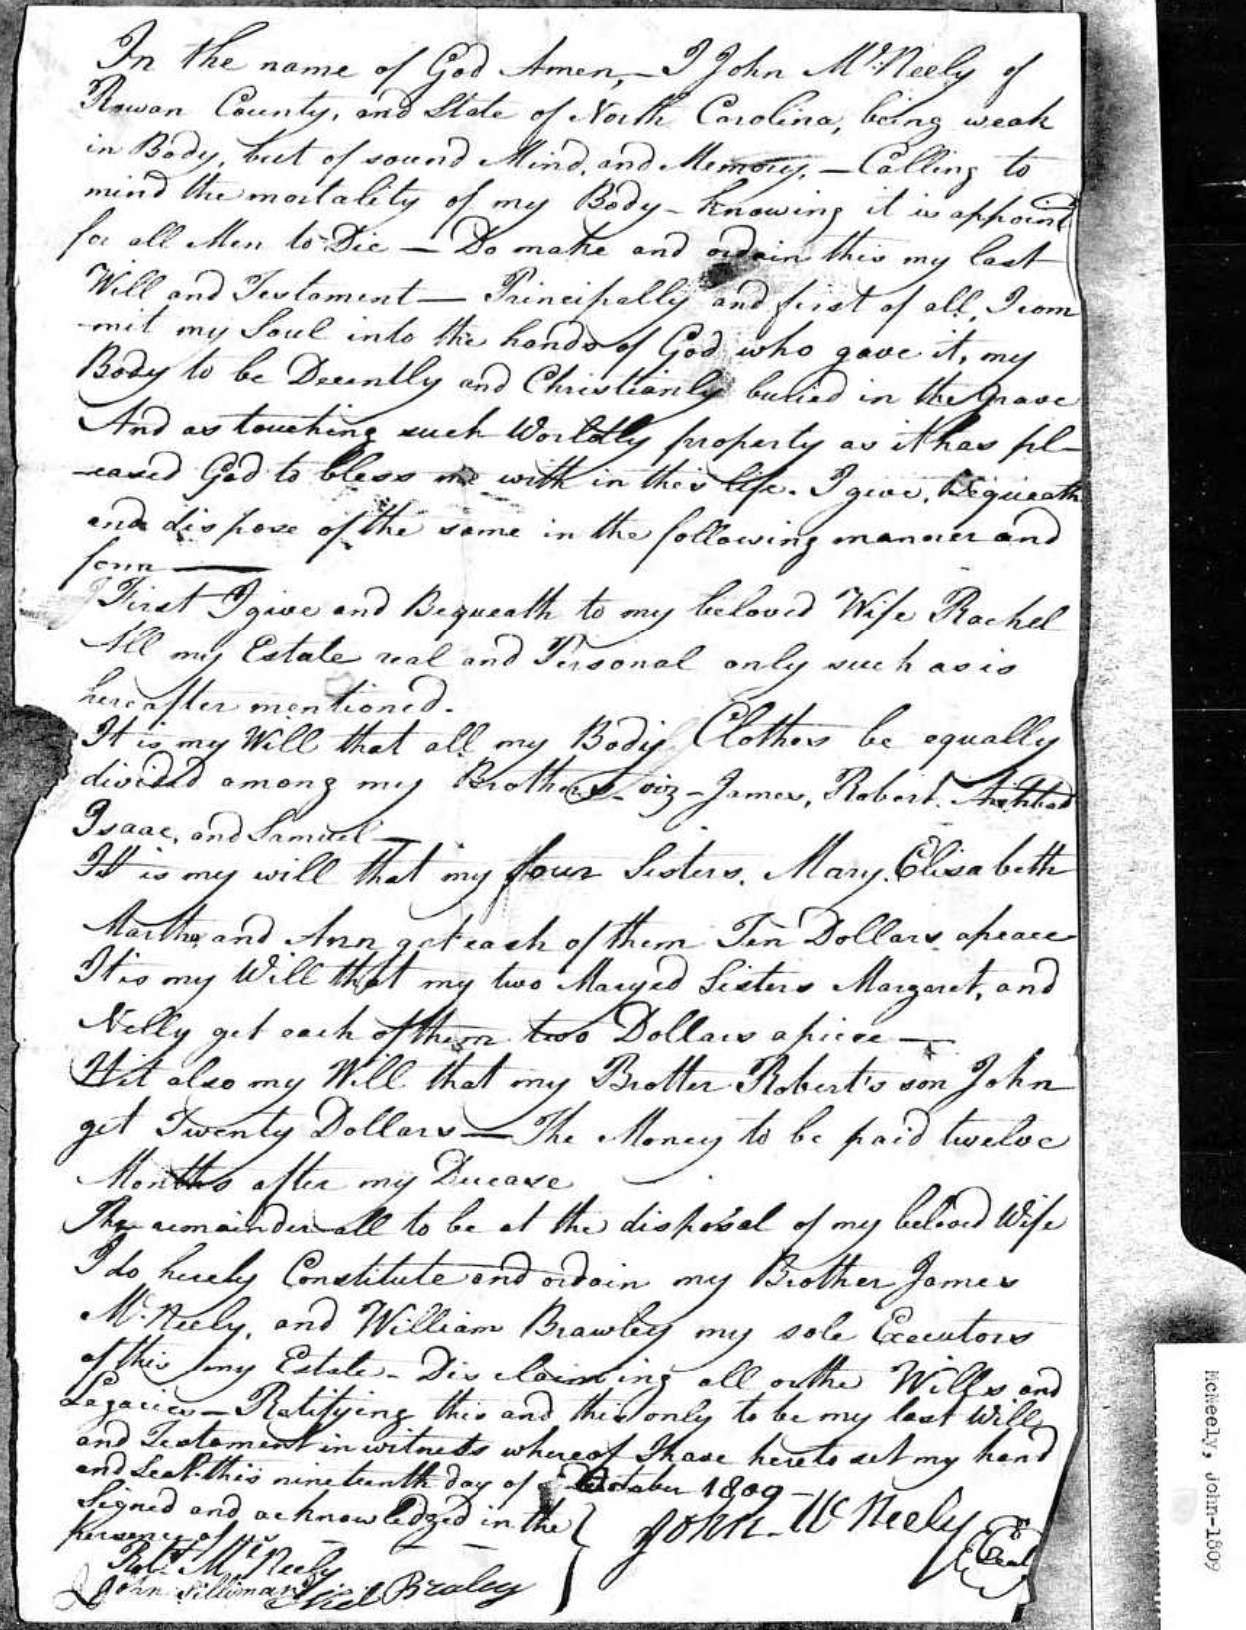 In the name of God Amen,— I John Mc.Neely of
Rowan County, and State of North Carolina, being weak
in Body, but of sound Mind, and Memory,— Calling to
mind the mortality of my Body— knowing it is appoint
for all Men to Die — Do make and ordain this my last
Will and Testament — Principally and first of all, I com
-mit my Soul into the hands of God who gave it, my
Body to be Decently and Christianly buried in the Grave
And as touching such Worldly property as it has pl-
-eased God to bless me with in this life. I give, Bequeath
and dispose of the same in the following manner and
form ——
First I give and Bequeath to my beloved Wife Rachel
All my Estate real and Personal only such as is
hereafter mentioned.
It is my Will that all my Body Clothes be equally
divided among my Brothers— viz— James, Robert,
Isaac, and Samuel—
It is my will that my four Sisters, Mary, Elisabeth
Martha, and Ann get each of them Ten Dollars apeace
It is my Will that my two Maryed Sisters Margaret, and
Nelly get each of them two Dollars apiece —
It it also my Will that my Brotter Robert's son John
get Twenty Dollars— The Money to be paid twelve
Months after my Decease
The remainder all to be at the disposal of my beloved Wife
I do hereby Constitute and ordain my Brother James
Mc.Neely, and William Brawley my sole Executors
of this my Estate— Disclaiming all other Wills and
Legacies— Ratifying this and this only to be my last Will
and Testament in witness whereof I have hereto set my hand
and Seal this nineteenth day of October 1809 —
Signed and acknowledged in the
persence of us
John McNeely Seal
Robt. McNeely
John Silliman
Neil Braley
McNeely, John-1809